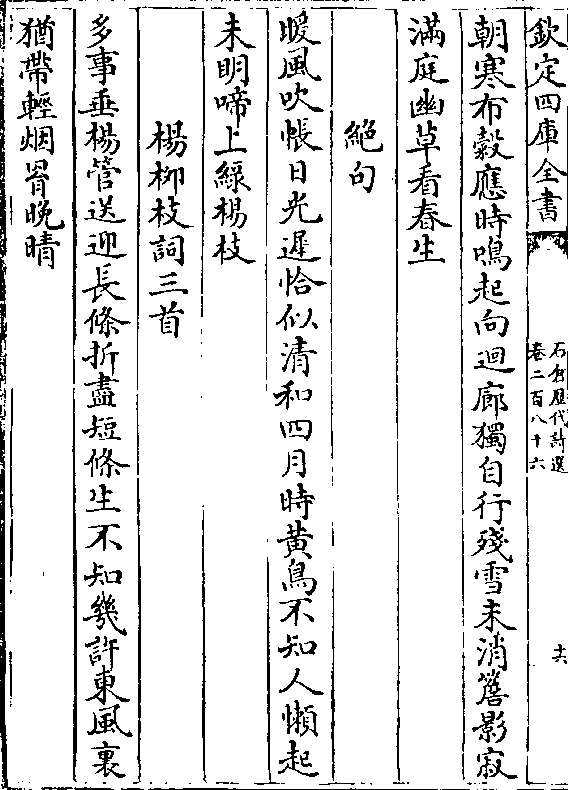 欽定四庫全書
石倉歷代詩選
卷二百八十六
十六
朝寒布穀應時鳴起向迴廊獨自行殘雪未消簷影寂
滿庭幽草看春生
絶句
暖風吹帳日光遲恰似清和四月時黄鳥不知人懶起
未明啼上緑楊枝
楊柳枝詞三首
多事垂楊管送迎長條折盡短條生不知幾許東風裏
猶帶輕烟罥晚晴